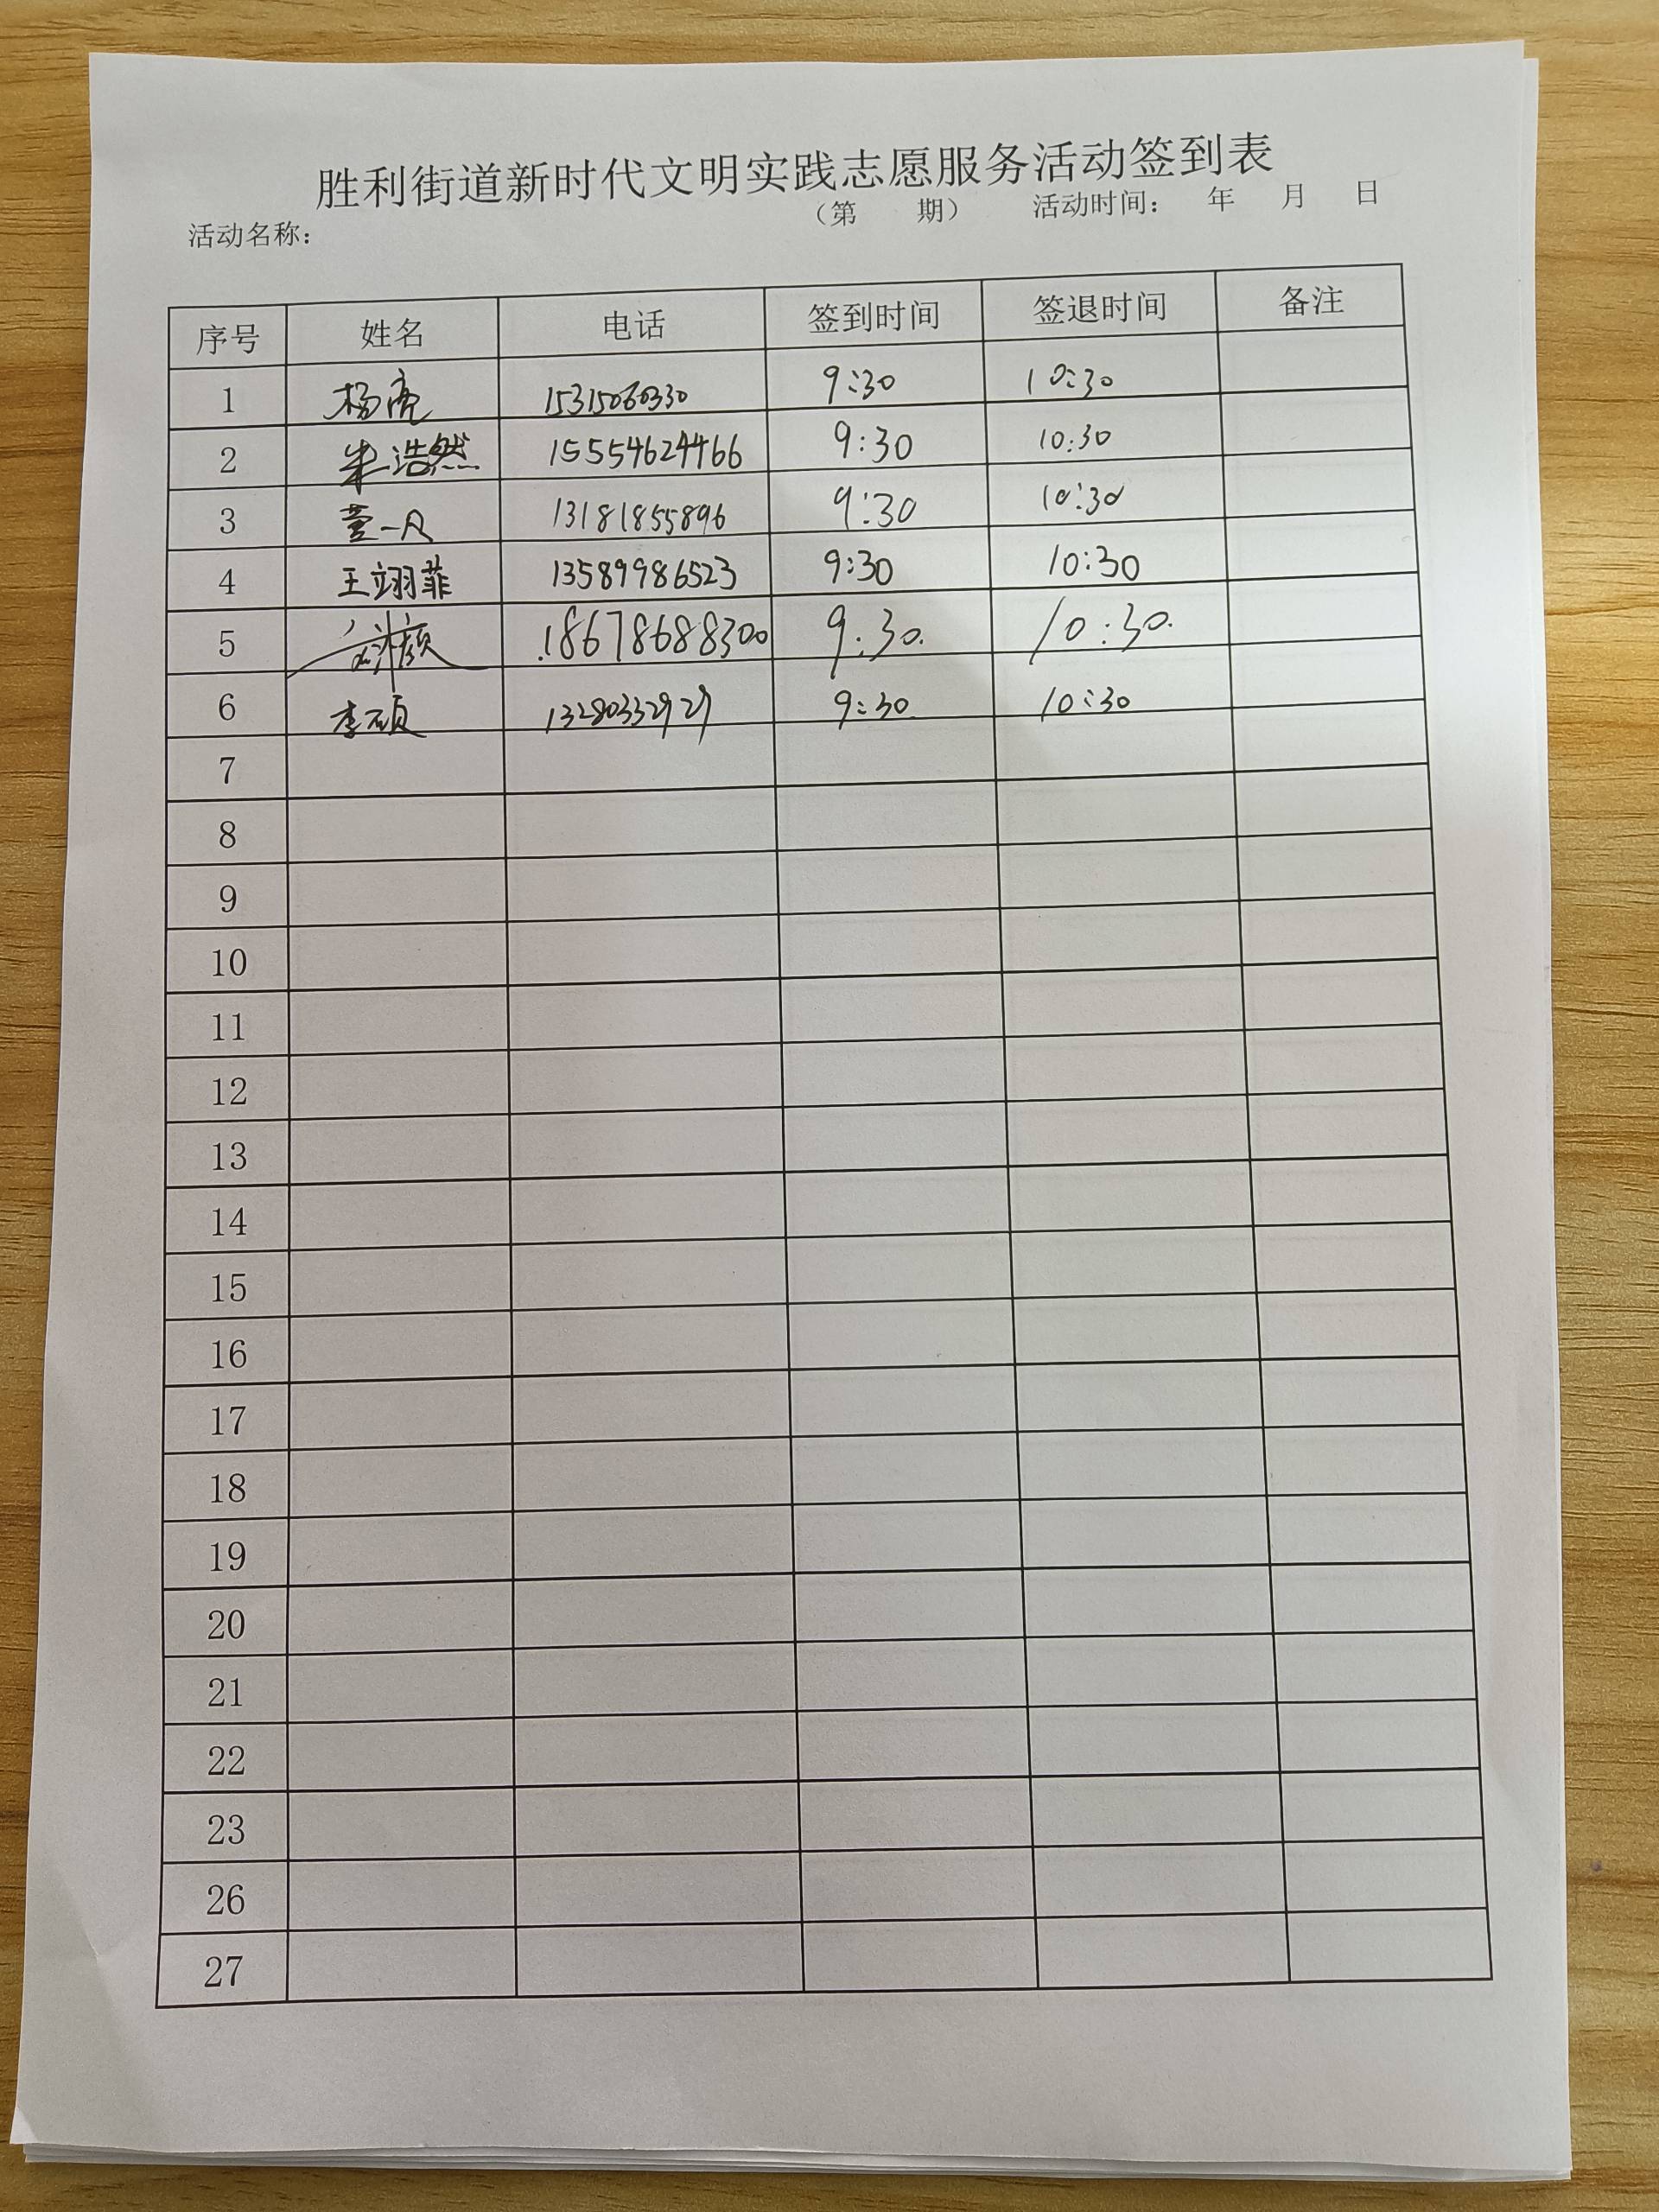 胜利街道新时代文明实践志愿服务活动签到表
活动名称： （第 期） 活动时间： 年 月 日
序号 姓名 电话 签到时间 签退时间 备注
1 杨亮 15315060330 9:30 10:30
2 朱浩然 15554624466 9:30 10:30
3 董一凡 13181855896 9:30 10:30
4 王翊菲 13589986523 9:30 10:30
5 18678688300 9:30. 10:30.
6 李硕 13280332929 9:30 10:30
7
8
9
10
11
12
13
14
15
16
17
18
19
20
21
22
23
26
27